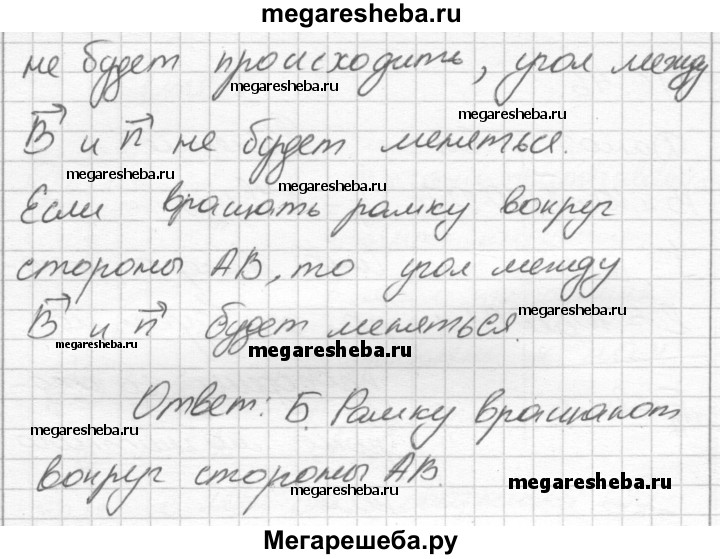 megaresheba.ru
не будет происходить, угол между
megaresheba.ru
megaresheba.ru
B и n не будет меняться.
megaresheba.ru
megaresheba.ru
Если вращать рамку вокруг
стороны AB, то угол между
megaresheba.ru
B и n будет меняться.
megaresheba.ru
megaresheba.ru
Ответ: Б. Рамку вращают
megaresheba.ru
вокруг стороны AB.
megaresheba.ru
megaresheba.ru
Мегарешеба.ру